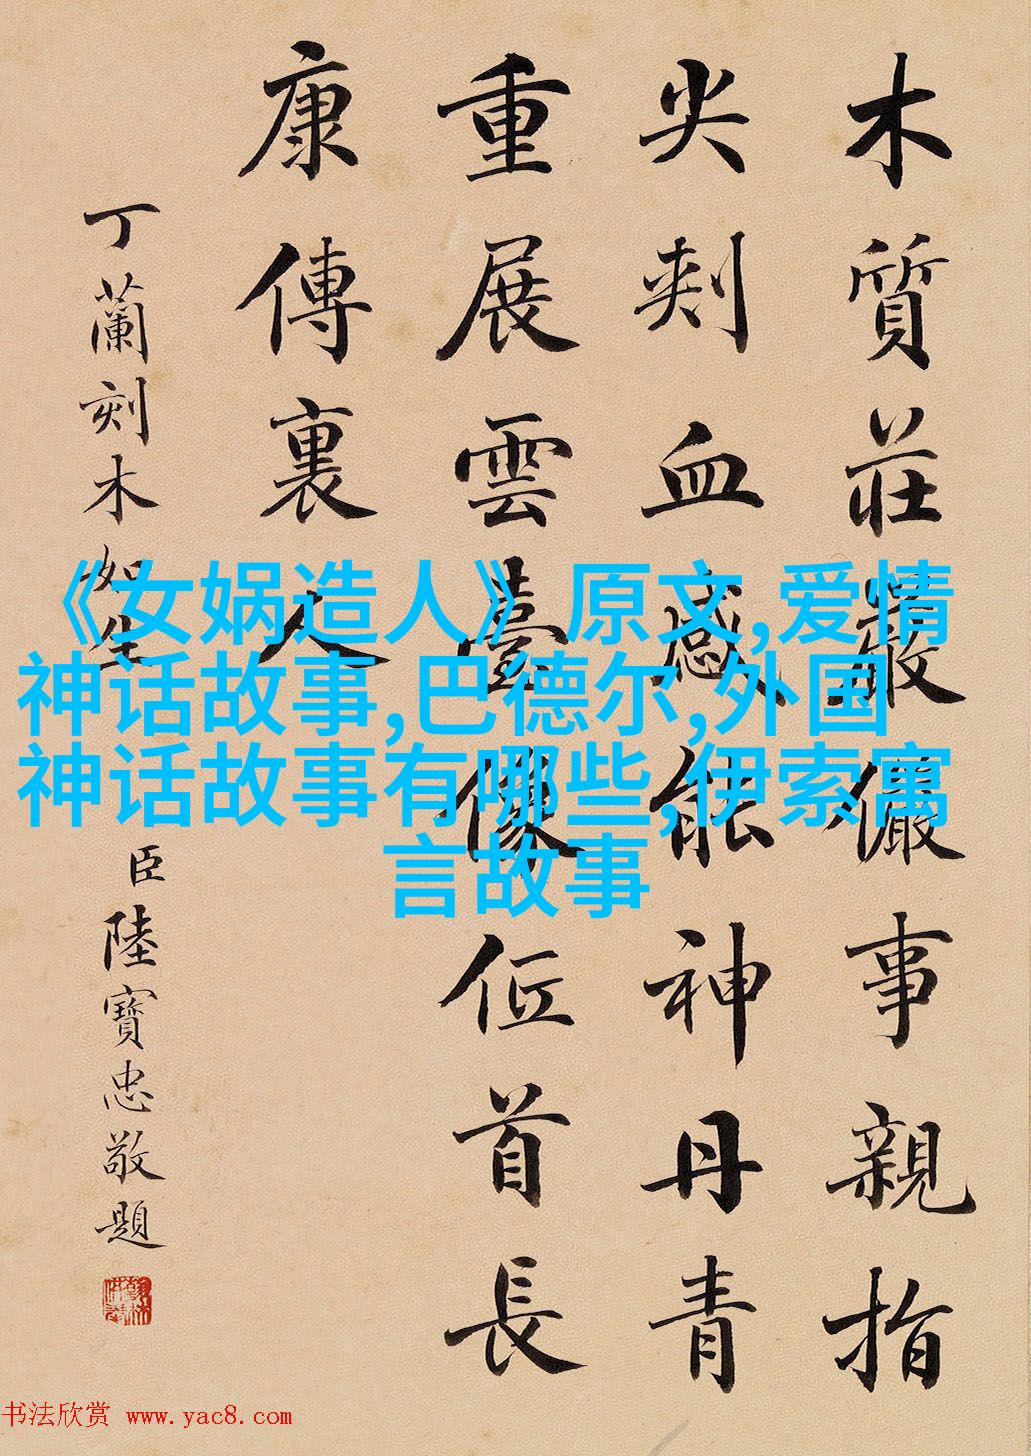 木質莊嚴儼事親指
尖刾血感能神丹青
重展雲臺像低首長
康傳裏人
丁蘭刻木如生
臣陸寶忠敬題
《女娲造人》原文,爱情
神话故事,巴德尔,外国
神话故事有哪些,伊索寓
言故事
书法欣赏 www.yac8.com